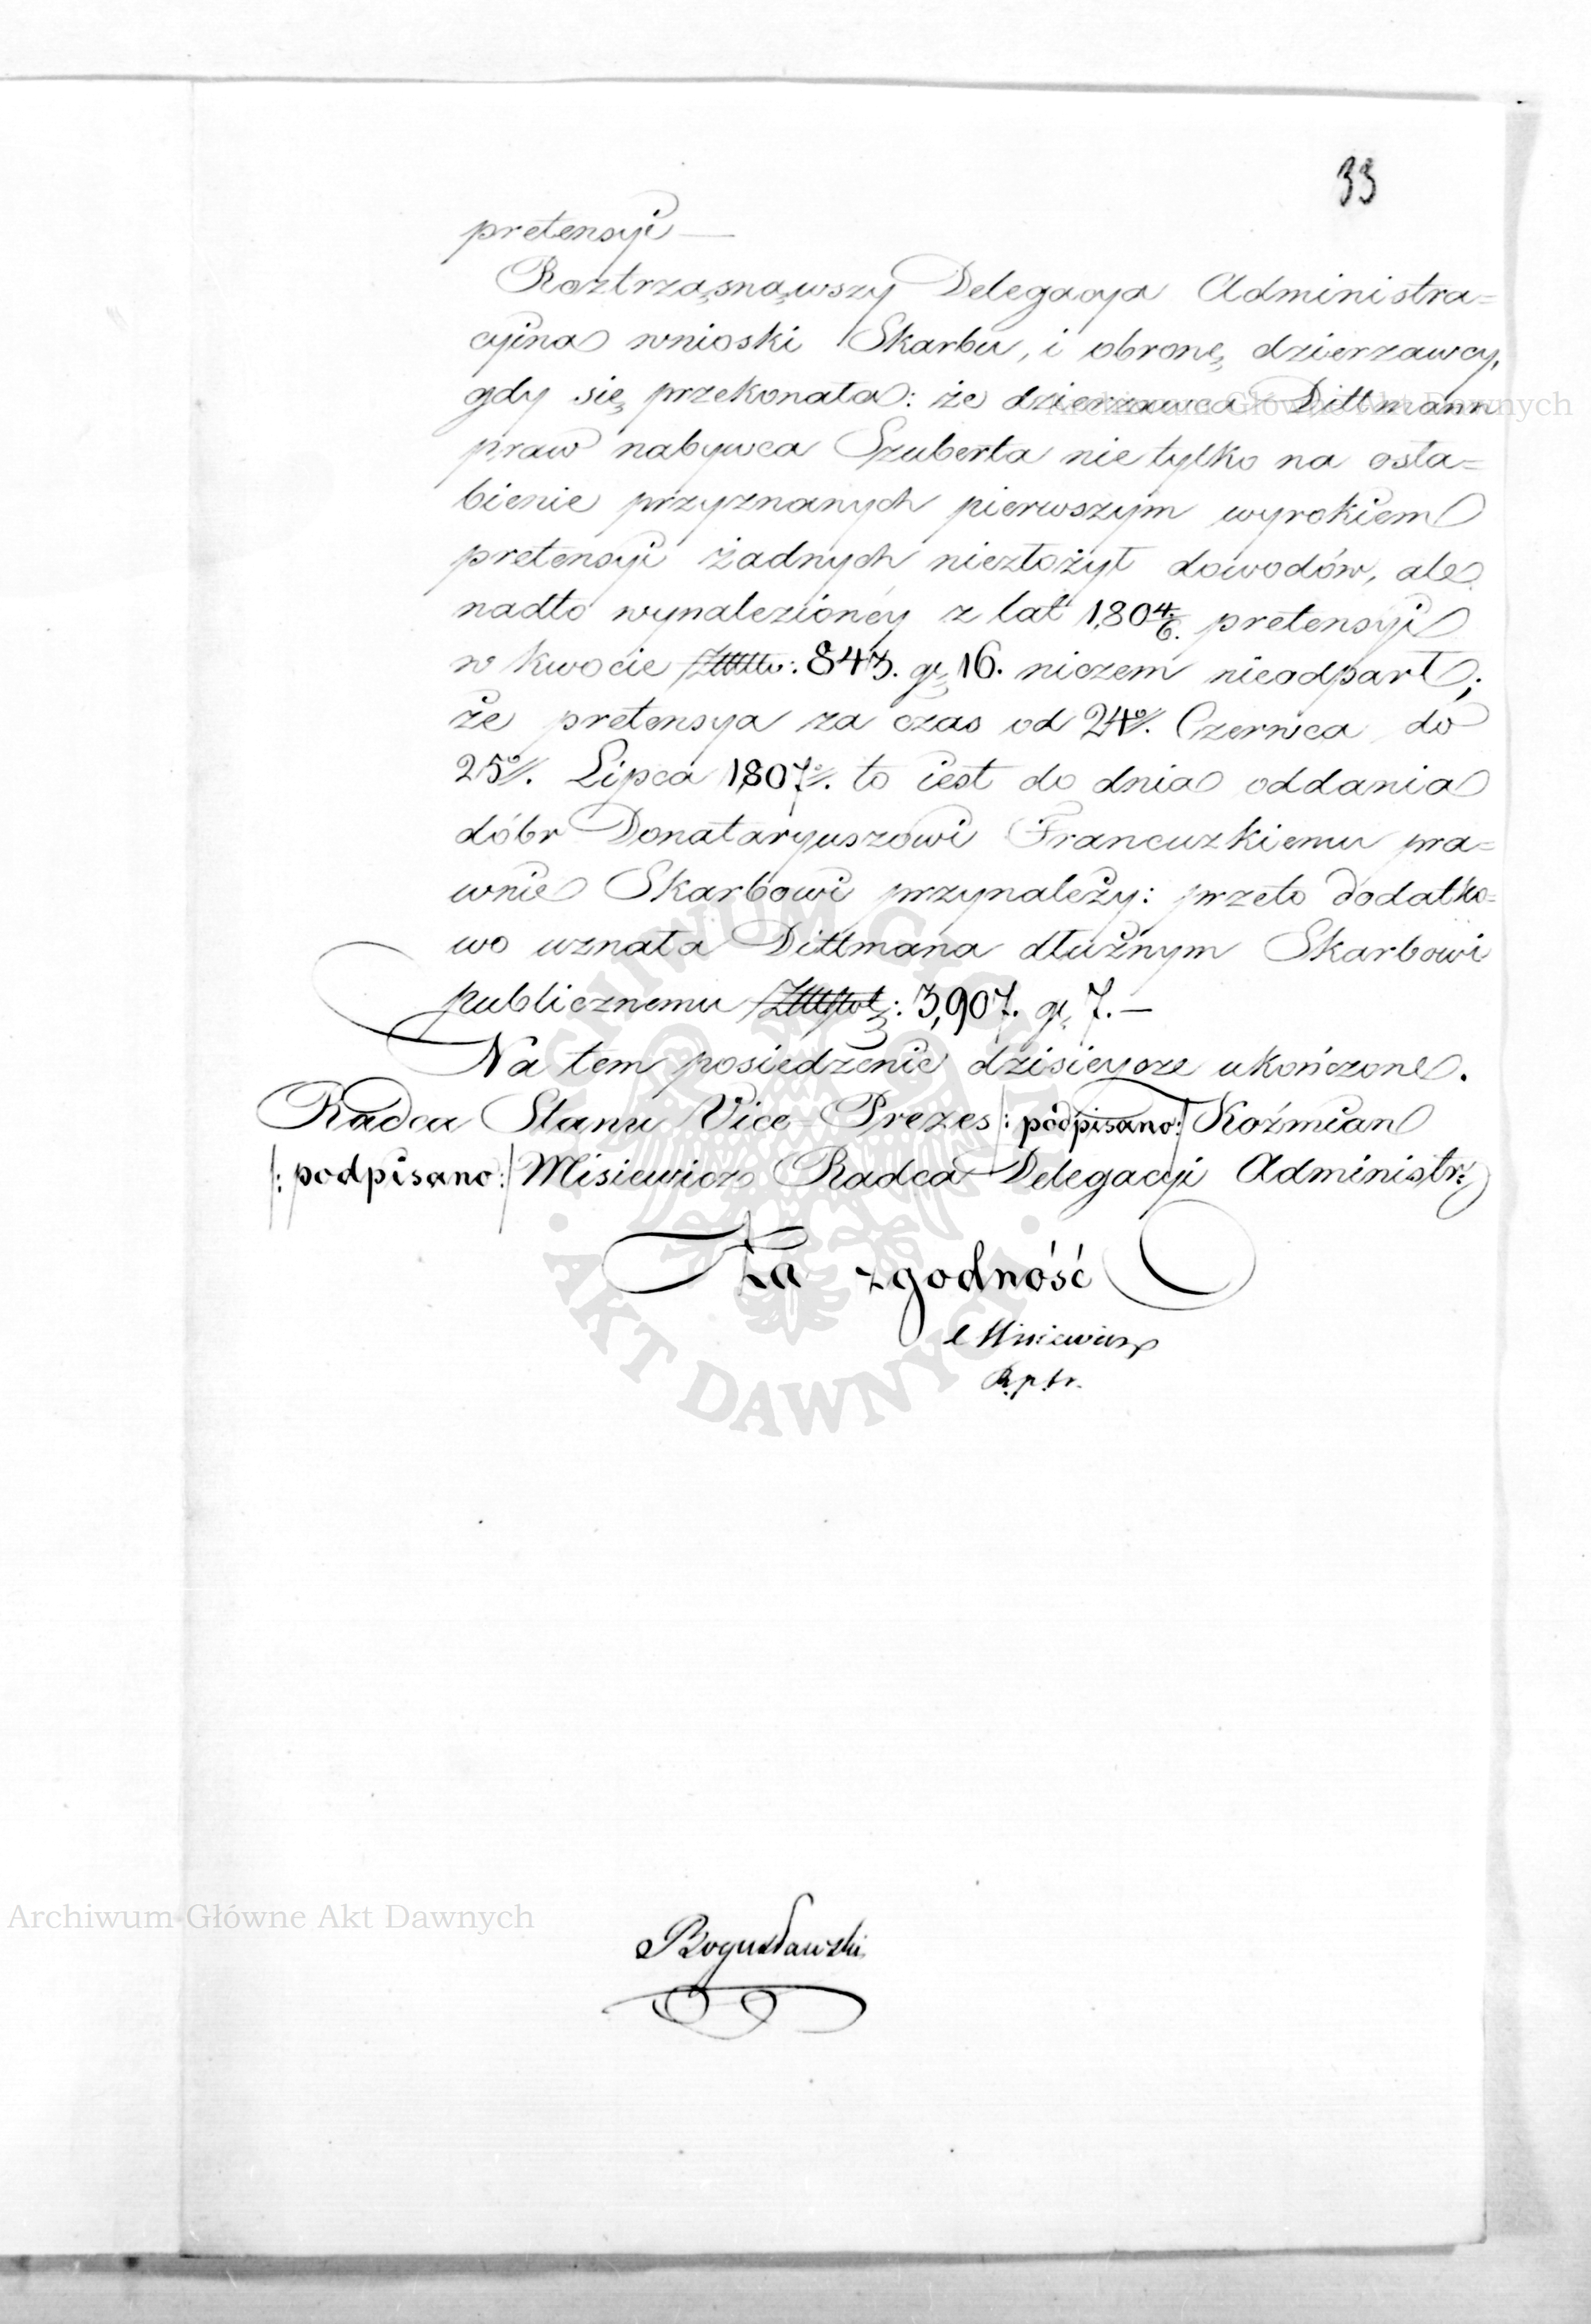 33
pretensyi —
Roztrząsnąwszy Delegacya Administra=
cyina wnioski Skarbu, i obronę dzierzawcy,
gdy się przekonała: że dzierzawca Dittmann
praw nabywca Szuberta nie tylko na osła=
bienie przyznanych pierwszym wyrokiem
pretensyi żadnych niezłożył dowodów, ale
nadto wynalezionéy z lat 1804/6. pretensyi
w kwocie 843. gr 16. niczem nieodparł;
że pretensya za czas od 24º/. Czerwca do
25º/. Lipca 1807º/. to iest do dnia oddania
dóbr Donataryuszowi Francuzkiemu pra=
wnie Skarbowi przynależy: przeto dodatko=
wo uznała Dittmana dłużnym Skarbowi
publicznemu : 3,907. gr 7. —
Na tem posiedzenie dzisieysze ukończone.
Radca Stanu Vice-Prezes /: podpisano :/ Koźmian
/: podpisano :/ Misiewicz Radca Delegacyi Administr:
Za zgodność
Misiewicz
Bogusławski
Archiwum Główne Akt Dawnych
Archiwum Główne Akt Dawnych
ARCHIWUM GŁÓWNE · AKT DAWNYCH ·